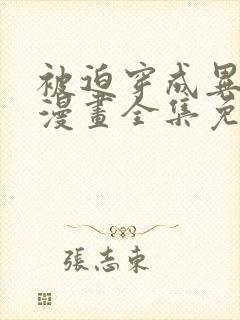 被迫穿成異
漫畫全集免
張志東